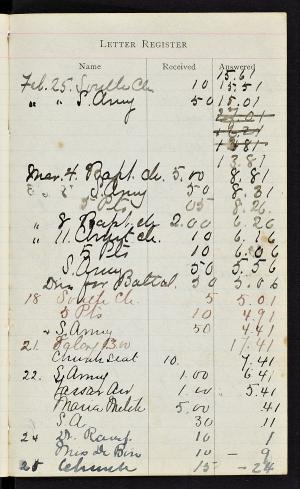 LETTER REGISTER
Name Received Answered
15.61
Feb. 25. South Ch 10 15.51
" " S. Army 50 15.01
13.81
Mar. 4. Bapt. ch. 5.00 8.81
S. Army 50 8.31
5 Pts 05 8.26
" 8 Bapt. ch 2.00 6.26
" 11. Christ ch. 10 6.16
5 Pts 10 6.06
S. Army 50 5.56
Din for Battal. 50 5.06
18 South Ch. 5 5.01
5 Pts 10 4.91
" S. Army 50 4.41
21. 13.00 17.41
Church Seat 10. 7.41
22. S. Army 1.00 6.41
Vassar 1.00 5.41
Maria 5.00 .41
S.A 30 .11
24 10 1
Mrs De 10 - 9
25 Church 15 - 24